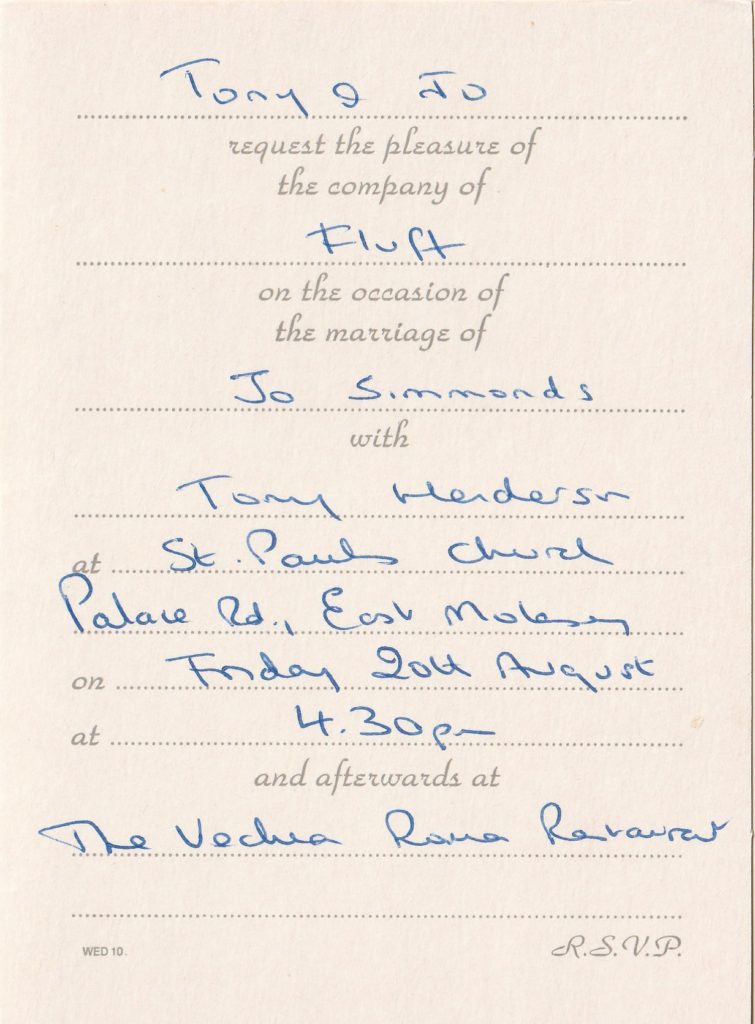 Tony & Jo
request the pleasure of
the company of
Fluff
on the occasion of
the marriage of
Jo Simmonds
with
Tony Henderson
at St. Pauls Church
Palace Rd., East Molesey
on Friday 20th August
at 4.30pm
and afterwards at
The Vechia Roma Restaurant
WED 10. R.S.V.P.